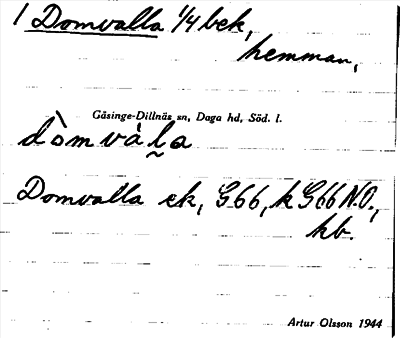 1 Domvalla 1/4 bek,
hemman,
Gåsinge-Dillnäs sn, Daga hd, Söd. l.
dòmvàl̰a
Domvalla ek, G66, k G66 N.O.,
hb.
Artur Olsson 1944